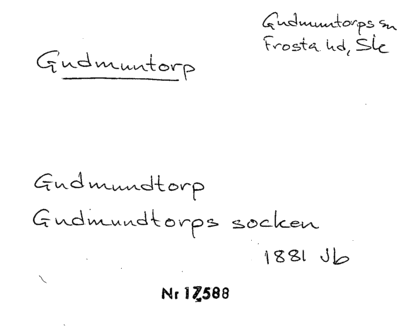 Gudmuntorps sn
Frosta hd, Sk
Gudmuntorp
Gudmundtorp
Gudmundtorps socken
1881 Jb
Nr 17588